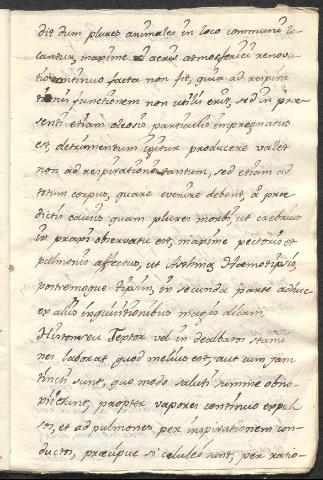 dit dum plures animales in loco communi lo-
cantur, maxime aeris atmosferici renova-
tio continuo facta non fit, quia ad respira-
tionis functionem non utilis erit, sed in præ-
senti etiam oleosis particulis impregnatus
est, detrimentum igitur producere valet
non ad respirationem tantum, sed etiam ad
totum corpus, quare evenire debent, a præ
dictis causis quam plures morbi, ut crebrius
in praxi observatu est, maxime pectoris et
pulmonis affectus, ut Asthma, Hæmotipsis,
postremoque tipsim, in secunda parte adhuc
ex aliis inquinitionibus magis dicam.
Textor vel in dealbatis stami
nes laborat quod melius est, aut cum jam
tincti sunt, quo modo saluti summe obno-
xii erunt, propter vapores continuo expul
sos, et ad pulmones per inspirationem con-
ductos, præcipue si celules sunt, per ratio-